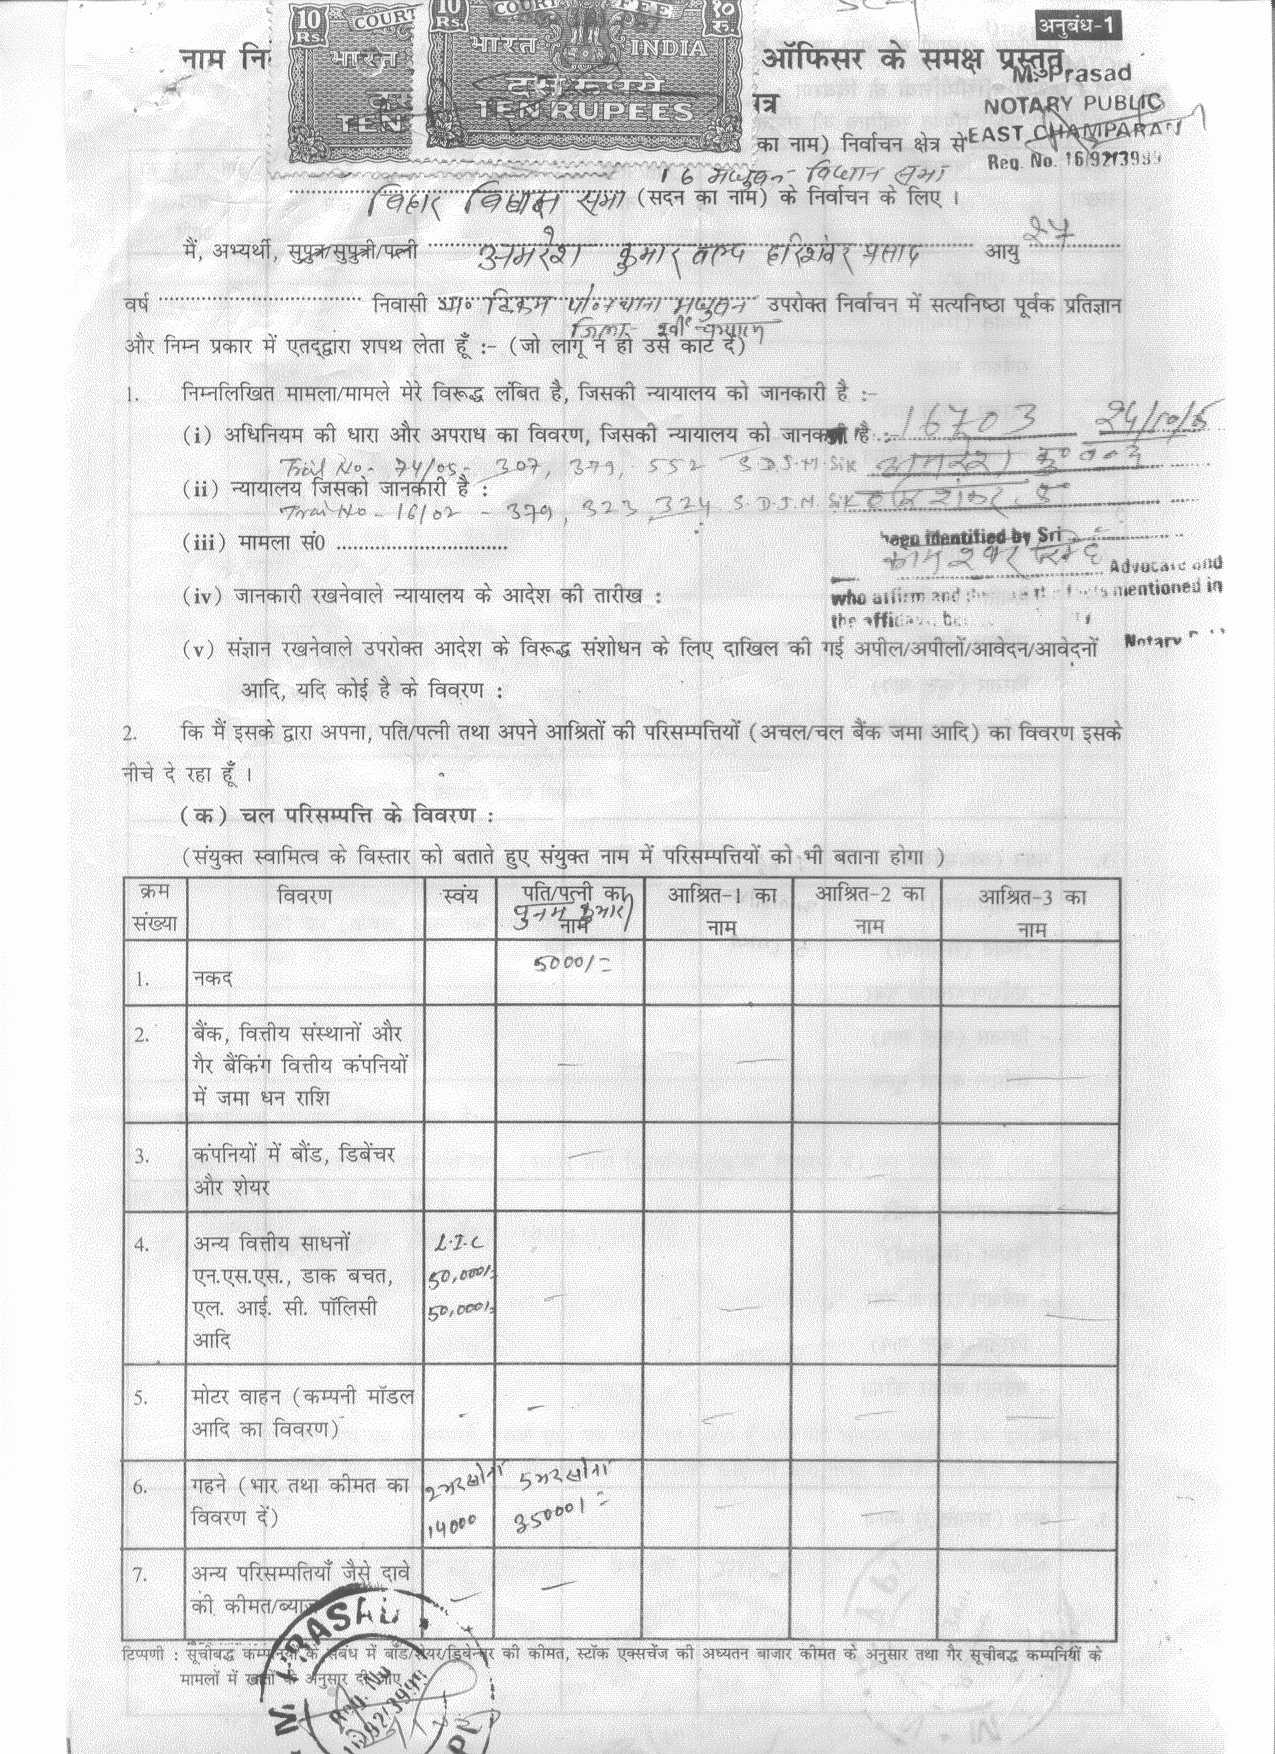 अनुबंध-1
10 Rs. COURT
10 Rs. COURT FEE १० रु.
भारत
भारत INDIA
दस रूपये
TEN
TEN RUPEES
नाम नि
ऑफिसर के समक्ष प्रस्तुत
M. Prasad
NOTARY PUBLIC
EAST CHAMPARAN
Reg. No. 16/92/3999
त्र
का नाम) निर्वाचन क्षेत्र से
16 मधुबन- विधान सभा
बिहार विधान सभा (सदन का नाम) के निर्वाचन के लिए ।
मैं, अभ्यर्थी, सुपुत्र/सुपुत्री/पत्नी अमरेश कुमार वल्द हरिशंकर प्रसाद आयु
वर्ष निवासी ग्रा० टिकम पो०+थाना मधुबन उपरोक्त निर्वाचन में सत्यनिष्ठा पूर्वक प्रतिज्ञान
जिला- पूर्वी चम्पारण
और निम्न प्रकार में एतद्द्वारा शपथ लेता हूँ :- (जो लागू न हो उसे काट दें)
1. निम्नलिखित मामला/मामले मेरे विरूद्ध लंबित है, जिसकी न्यायालय को जानकारी है :-
(i) अधिनियम की धारा और अपराध का विवरण, जिसकी न्यायालय को जानकारी है : 16703 24/10/5
Trial No- 74/05- 307, 379, 552 S.D.J.M. Sik अमरेश
(ii) न्यायालय जिसको जानकारी है :
Trai No - 16/02 - 379, 323, 324 S.D.J.M. Sik
(iii) मामला सं0
been identified by Sri
(iv) जानकारी रखनेवाले न्यायालय के आदेश की तारीख :
Advocate and
who affirm and mentioned in
the affidavit
(v) संज्ञान रखनेवाले उपरोक्त आदेश के विरूद्ध संशोधन के लिए दाखिल की गई अपील/अपीलों/आवेदन/आवेदनों
Notary
आदि, यदि कोई है के विवरण :
2. कि मैं इसके द्वारा अपना, पति/पत्नी तथा अपने आश्रितों की परिसम्पत्तियों (अचल/चल बैंक जमा आदि) का विवरण इसके
नीचे दे रहा हूँ ।
(क) चल परिसम्पत्ति के विवरण :
(संयुक्त स्वामित्व के विस्तार को बताते हुए संयुक्त नाम में परिसम्पत्तियों को भी बताना होगा )
क्रम संख्या विवरण स्वंय पति/पत्नी का नाम आश्रित-1 का नाम आश्रित-2 का नाम आश्रित-3 का नाम
पुनम कुमारी
1. नकद 5000/=
2. बैंक, वित्तीय संस्थानों और
गैर बैंकिंग वित्तीय कंपनियों
में जमा धन राशि
3. कंपनियों में बौंड, डिबेंचर
और शेयर
4. अन्य वित्तीय साधनों L.I.C
एन.एस.एस., डाक बचत, 50,000/=
एल. आई. सी. पॉलिसी 50,000/=
आदि
5. मोटर वाहन (कम्पनी मॉडल
आदि का विवरण)
6. गहने (भार तथा कीमत का 2 भर सोना 5 भर सोना
विवरण दें) 14000 35000/=
7. अन्य परिसम्पतियाँ जैसे दावे
की कीमत/ब्याज
टिप्पणी : सूचीबद्ध कम्पनियों के संबंध में बॉंड/शेयर/डिबेन्चर की कीमत, स्टॉक एक्सचेंज की अध्यतन बाजार कीमत के अनुसार तथा गैर सूचीबद्ध कम्पनियों के
मामलों में खातों के अनुसार दी जाए :
M. PRASAD
Reg. No
16/92/3999